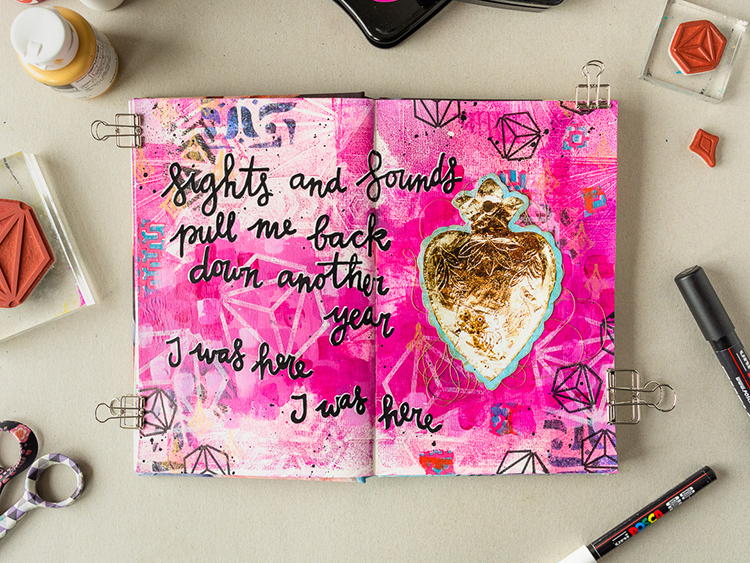 Sights and Sounds
pull me back
down another
year
I was here
I was here
POSCA